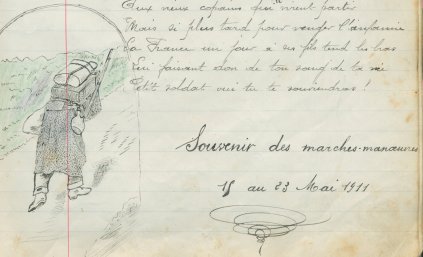 vieux copains qui vient partir
Mais si plus tard pour venger l'infamie
La France un jour à ses fils tend les bras
En faisant don de ton sang de ta vie
Petit soldat oui tu te souviendras !
Souvenir des marches-manœuvres
15 au 23 Mai 1911